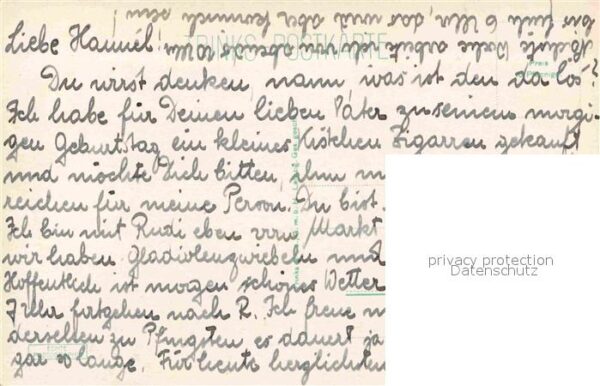 Liebe Hannél!
DRINKS POSTKARTE
Du wirst denken, nann was ist den da los?
Ich habe für Deinen lieben Vater zu seinem morgi-
gen Geburtstag ein kleines Kistchen Zigarren gekauft
und möchte Dich bitten, ihm
reichen für meine Person. Du bist
Ich bin mit Rudi eben vom Markt
wir haben Gladiolenzwiebeln und
Hoffentlich ist morgen schönes Wetter
7 Uhr fortgehen nach R. Ich freue
derselben zu Pfingsten es dauert ja
gar so lange. Für heute herzlichsten
Nächste Woche arbeite ich von abends
bis früh 6 Uhr, das wird aber
privacy protection
Datenschutz